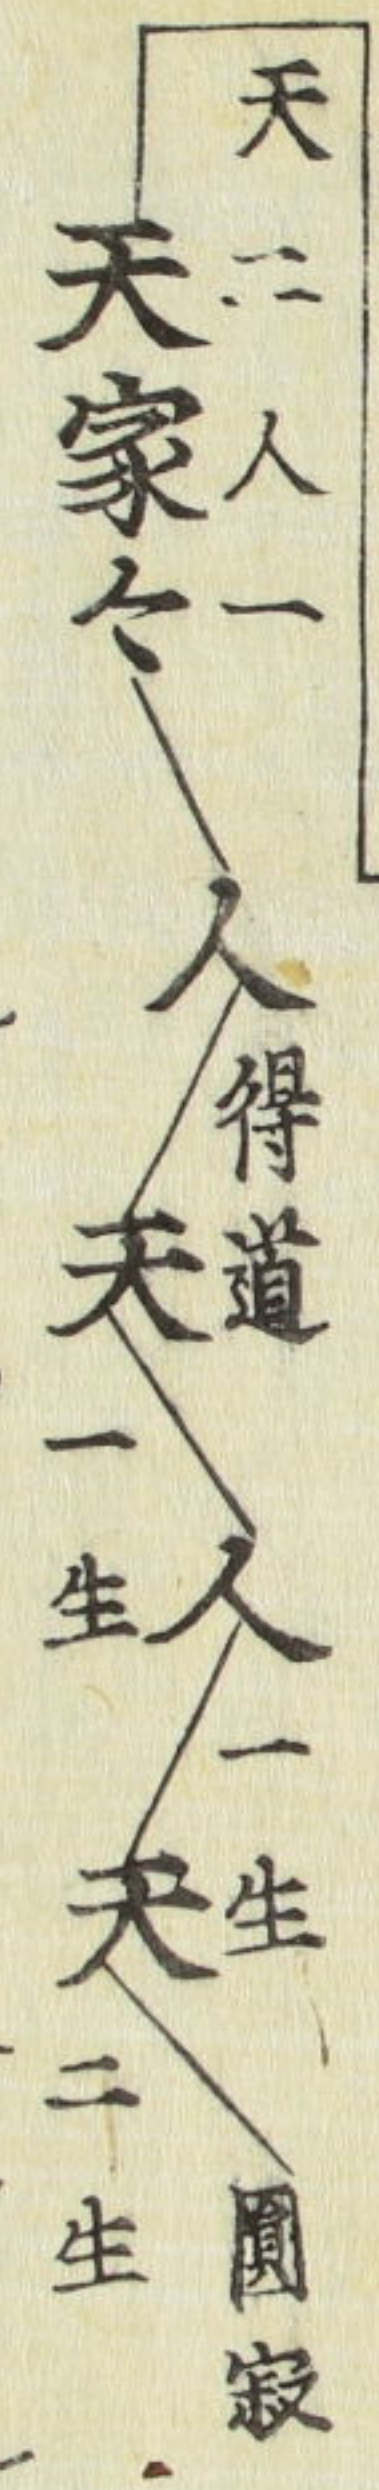 天二人一
天家々
人得道
天一生
人一生
天二生
圓寂